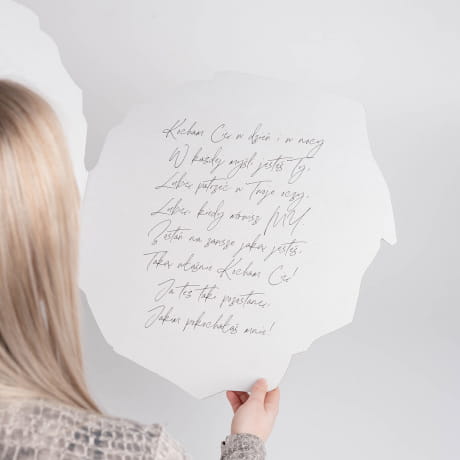 Kocham Cię w dzień i w nocy
W każdej myśli jesteś Ty,
Lubię patrzeć w Twoje oczy,
Lubię kiedy mówisz MY.
Zostań na zawsze jaka jesteś,
Taką właśnie Kocham Cię!
Ja też taki pozostanę,
Jakim pokochałaś mnie!